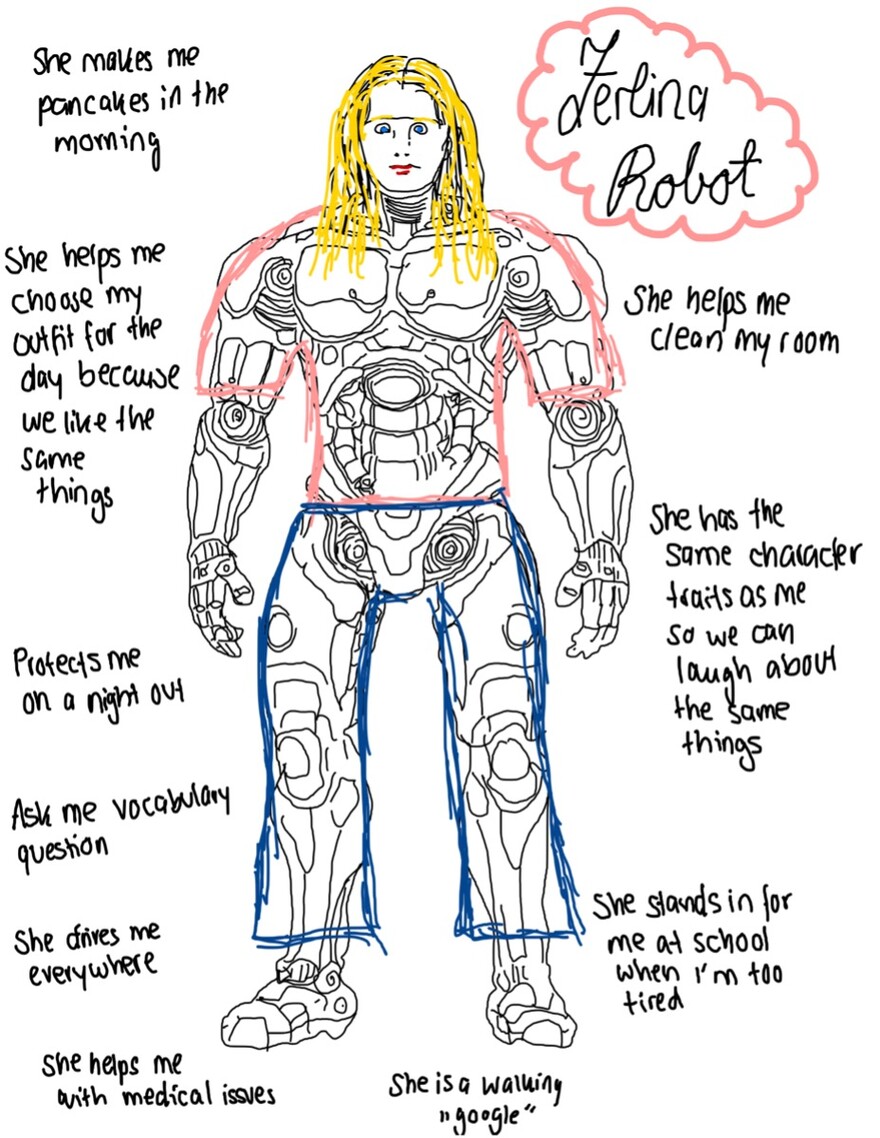 Zerlina
Robot
She makes me
pancakes in the
morning
She helps me
choose my
outfit for the
day because
we like the
same
things
She helps me
clean my room
She has the
same character
traits as me
so we can
laugh about
the same
things
Protects me
on a night out
Ask me vocabulary
question
She drives me
everywhere
She stands in for
me at school
when I'm too
tired
She helps me
with medical issues
She is a walking
„google“